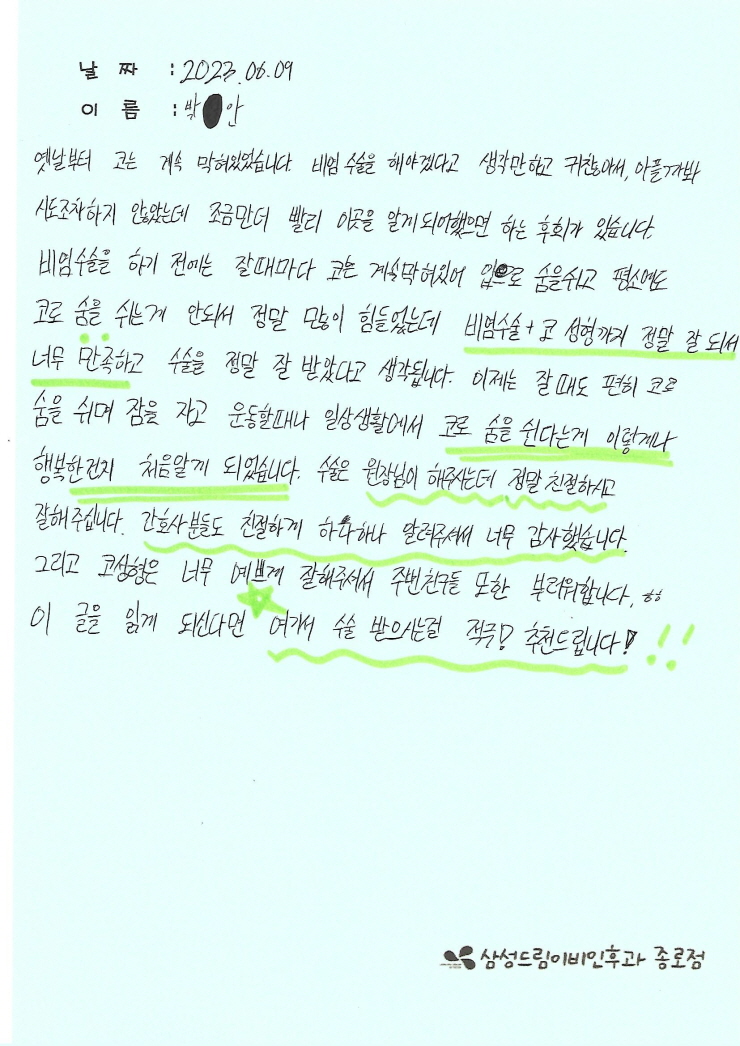 날 짜 : 2023.06.09
이 름 : 박 안
옛날부터 코는 계속 막혀있었습니다. 비염 수술을 해야겠다고 생각만하고 귀찮아서, 아플까봐
시도조차하지 않았는데 조금만더 빨리 이곳을 알게되어했으면 하는 후회가 있습니다.
비염수술을 하기 전에는 잘때마다 코는 계속막혀있어 입으로 숨을쉬고 평소에도
코로 숨을 쉬는게 안되서 정말 많이 힘들었는데 비염수술+코 성형까지 정말 잘 되서
너무 만족하고 수술을 정말 잘 받았다고 생각됩니다. 이제는 잘때도 편히 코로
숨을 쉬며 잠을 자고 운동할때나 일상생활에서 코로 숨을 쉰다는게 이렇게나
행복한건지 처음알게 되었습니다. 수술은 원장님이 해주시는데 정말 친절하시고
잘해주십니다. 간호사분들도 친절하게 하나하나 알려주셔서 너무 감사했습니다.
그리고 코성형은 너무 예쁘게 잘해주셔서 주변친구들 또한 부러워합니다. ㅎㅎ
이 글을 읽게 되신다면 여기서 수술 받으시는걸 적극! 추천드립니다! !!
삼성드림이비인후과 종로점